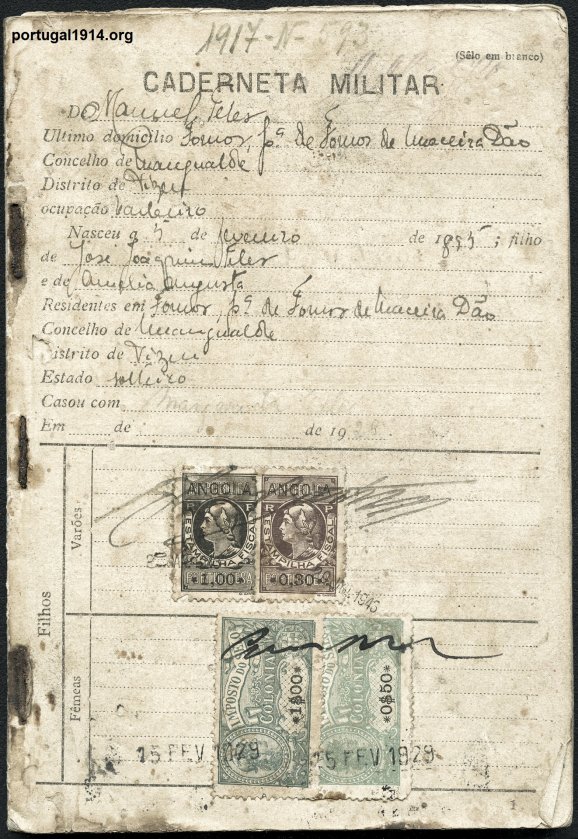 portugal1914.org
1917-N-593
(Sêlo em branco)
CADERNETA MILITAR
De Manuel Teles
Ultimo domicílio Fornos, fª de Fornos de Maceira Dão
Concelho de Mangualde
Distrito de Vizeu
ocupação
Nasceu a 5 de fevereiro de 1895; filho
de José Joaquim Teles
e de Amelia Augusta
Residentes em Fornos, fª de Fornos de Maceira Dão
Concelho de Mangualde
Distrito de Vizeu
Estado solteiro
Casou com
Em de de 19
Filhos
Varões
ANGOLA ANGOLA
R P R P
ESTAMPILHA FISCAL ESTAMPILHA FISCAL
1,00 0,30
1945
Fêmeas
IMPOSTO DO SELO IMPOSTO DO SELO
COLONIAL COLONIAL
*1$00* *0$50*
15 FEV 1929 15 FEV 1929